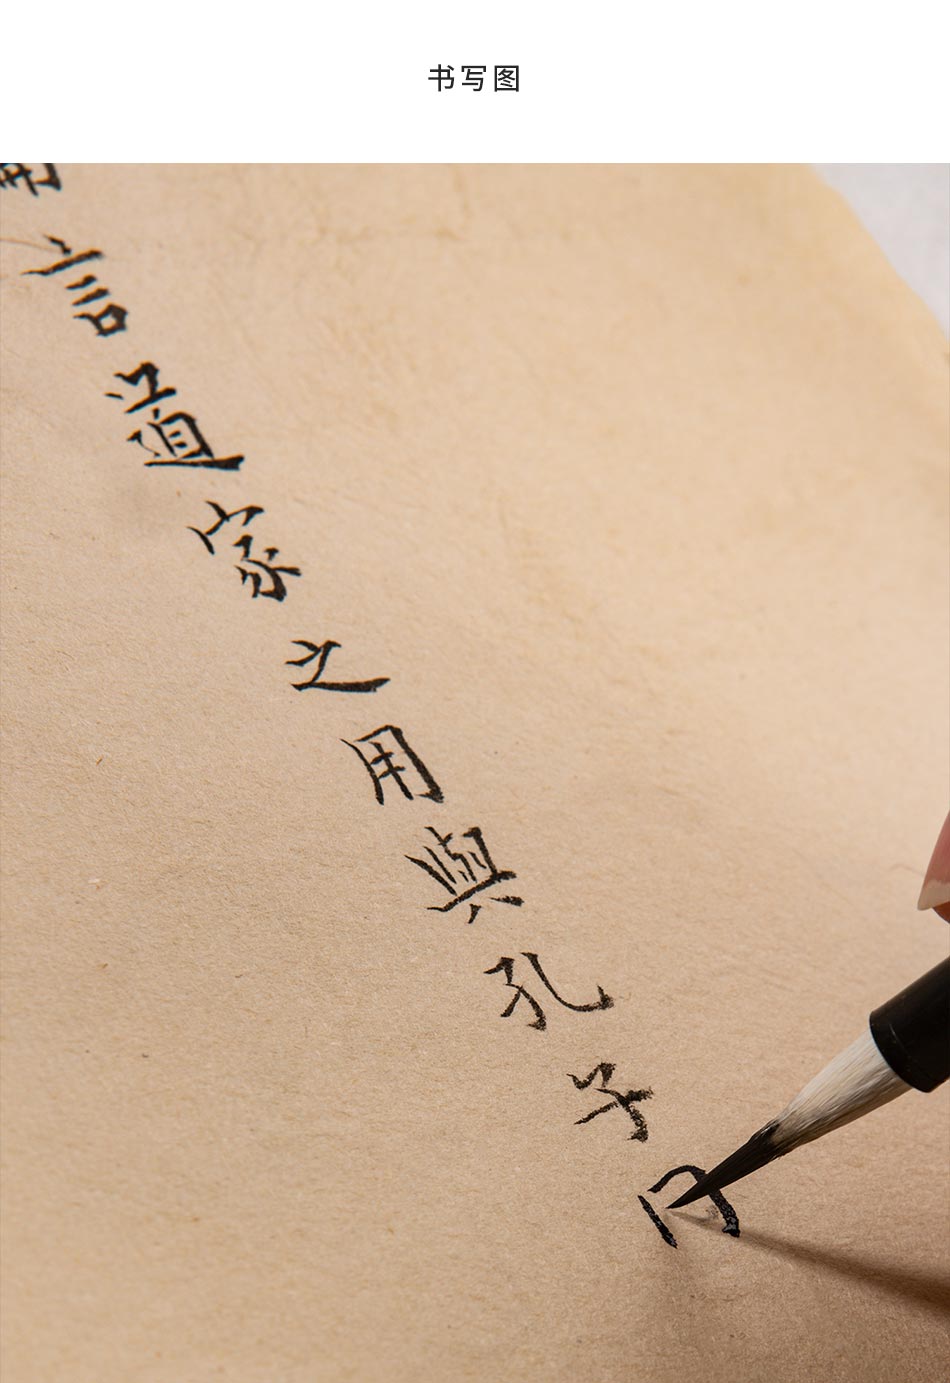 书写图
言道家之用與孔子